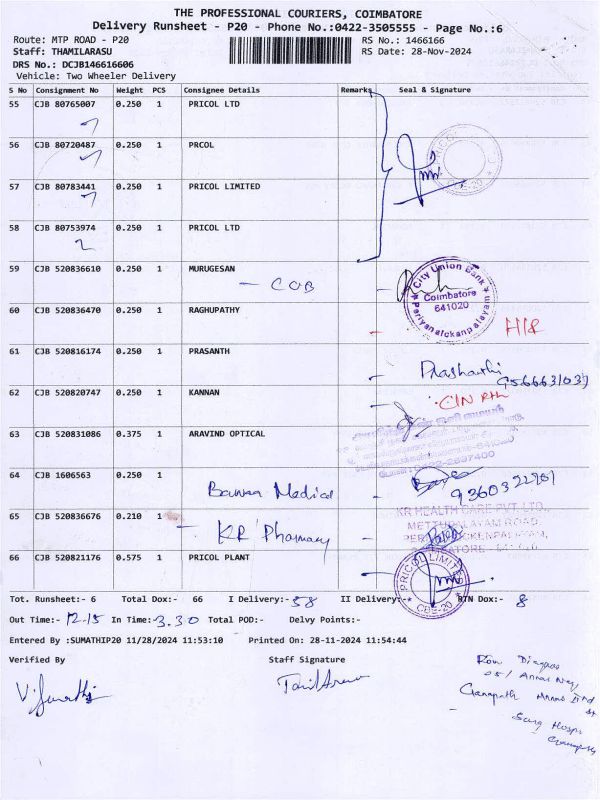 THE PROFESSIONAL COURIERS, COIMBATORE
Delivery Runsheet - P20 - Phone No.:0422-3505555 - Page No.:6
Route: MTP ROAD - P20 RS No.: 1466166
Staff: THAMILARASU RS Date: 28-Nov-2024
DRS No.: DCJB146616606
Vehicle: Two Wheeler Delivery
S No Consignment No Weight PCS Consignee Details Remarks Seal & Signature
55 CJB 80765007 0.250 1 PRICOL LTD
56 CJB 80720487 0.250 1 PRCOL
PRICOL
CBE-20
57 CJB 80783441 0.250 1 PRICOL LIMITED
58 CJB 80753974 0.250 1 PRICOL LTD
59 CJB 520836610 0.250 1 MURUGESAN
- COB
City Union Bank
Coimbatore
641020
Periyanaickenpalayam
60 CJB 520836470 0.250 1 RAGHUPATHY
61 CJB 520816174 0.250 1 PRASANTH
62 CJB 520820747 0.250 1 KANNAN
63 CJB 520831086 0.375 1 ARAVIND OPTICAL
64 CJB 1606563 0.250 1
Medical
65 CJB 520836676 0.210 1
- KR Pharmacy
KR HEALTH CARE PVT. LTD.,
METTUPALAYAM ROAD,
66 CJB 520821176 0.575 1 PRICOL PLANT
PRICOL LIMITED
CBE-20
Tot. Runsheet:- 6 Total Dox:- 66 I Delivery:- 58 II Delivery:- RTN Dox:- 8
Out Time:- 12.15 In Time:- 3.30 Total POD:- Delvy Points:-
Entered By :SUMATHIP20 11/28/2024 11:53:10 Printed On: 28-11-2024 11:54:44
Verified By Staff Signature